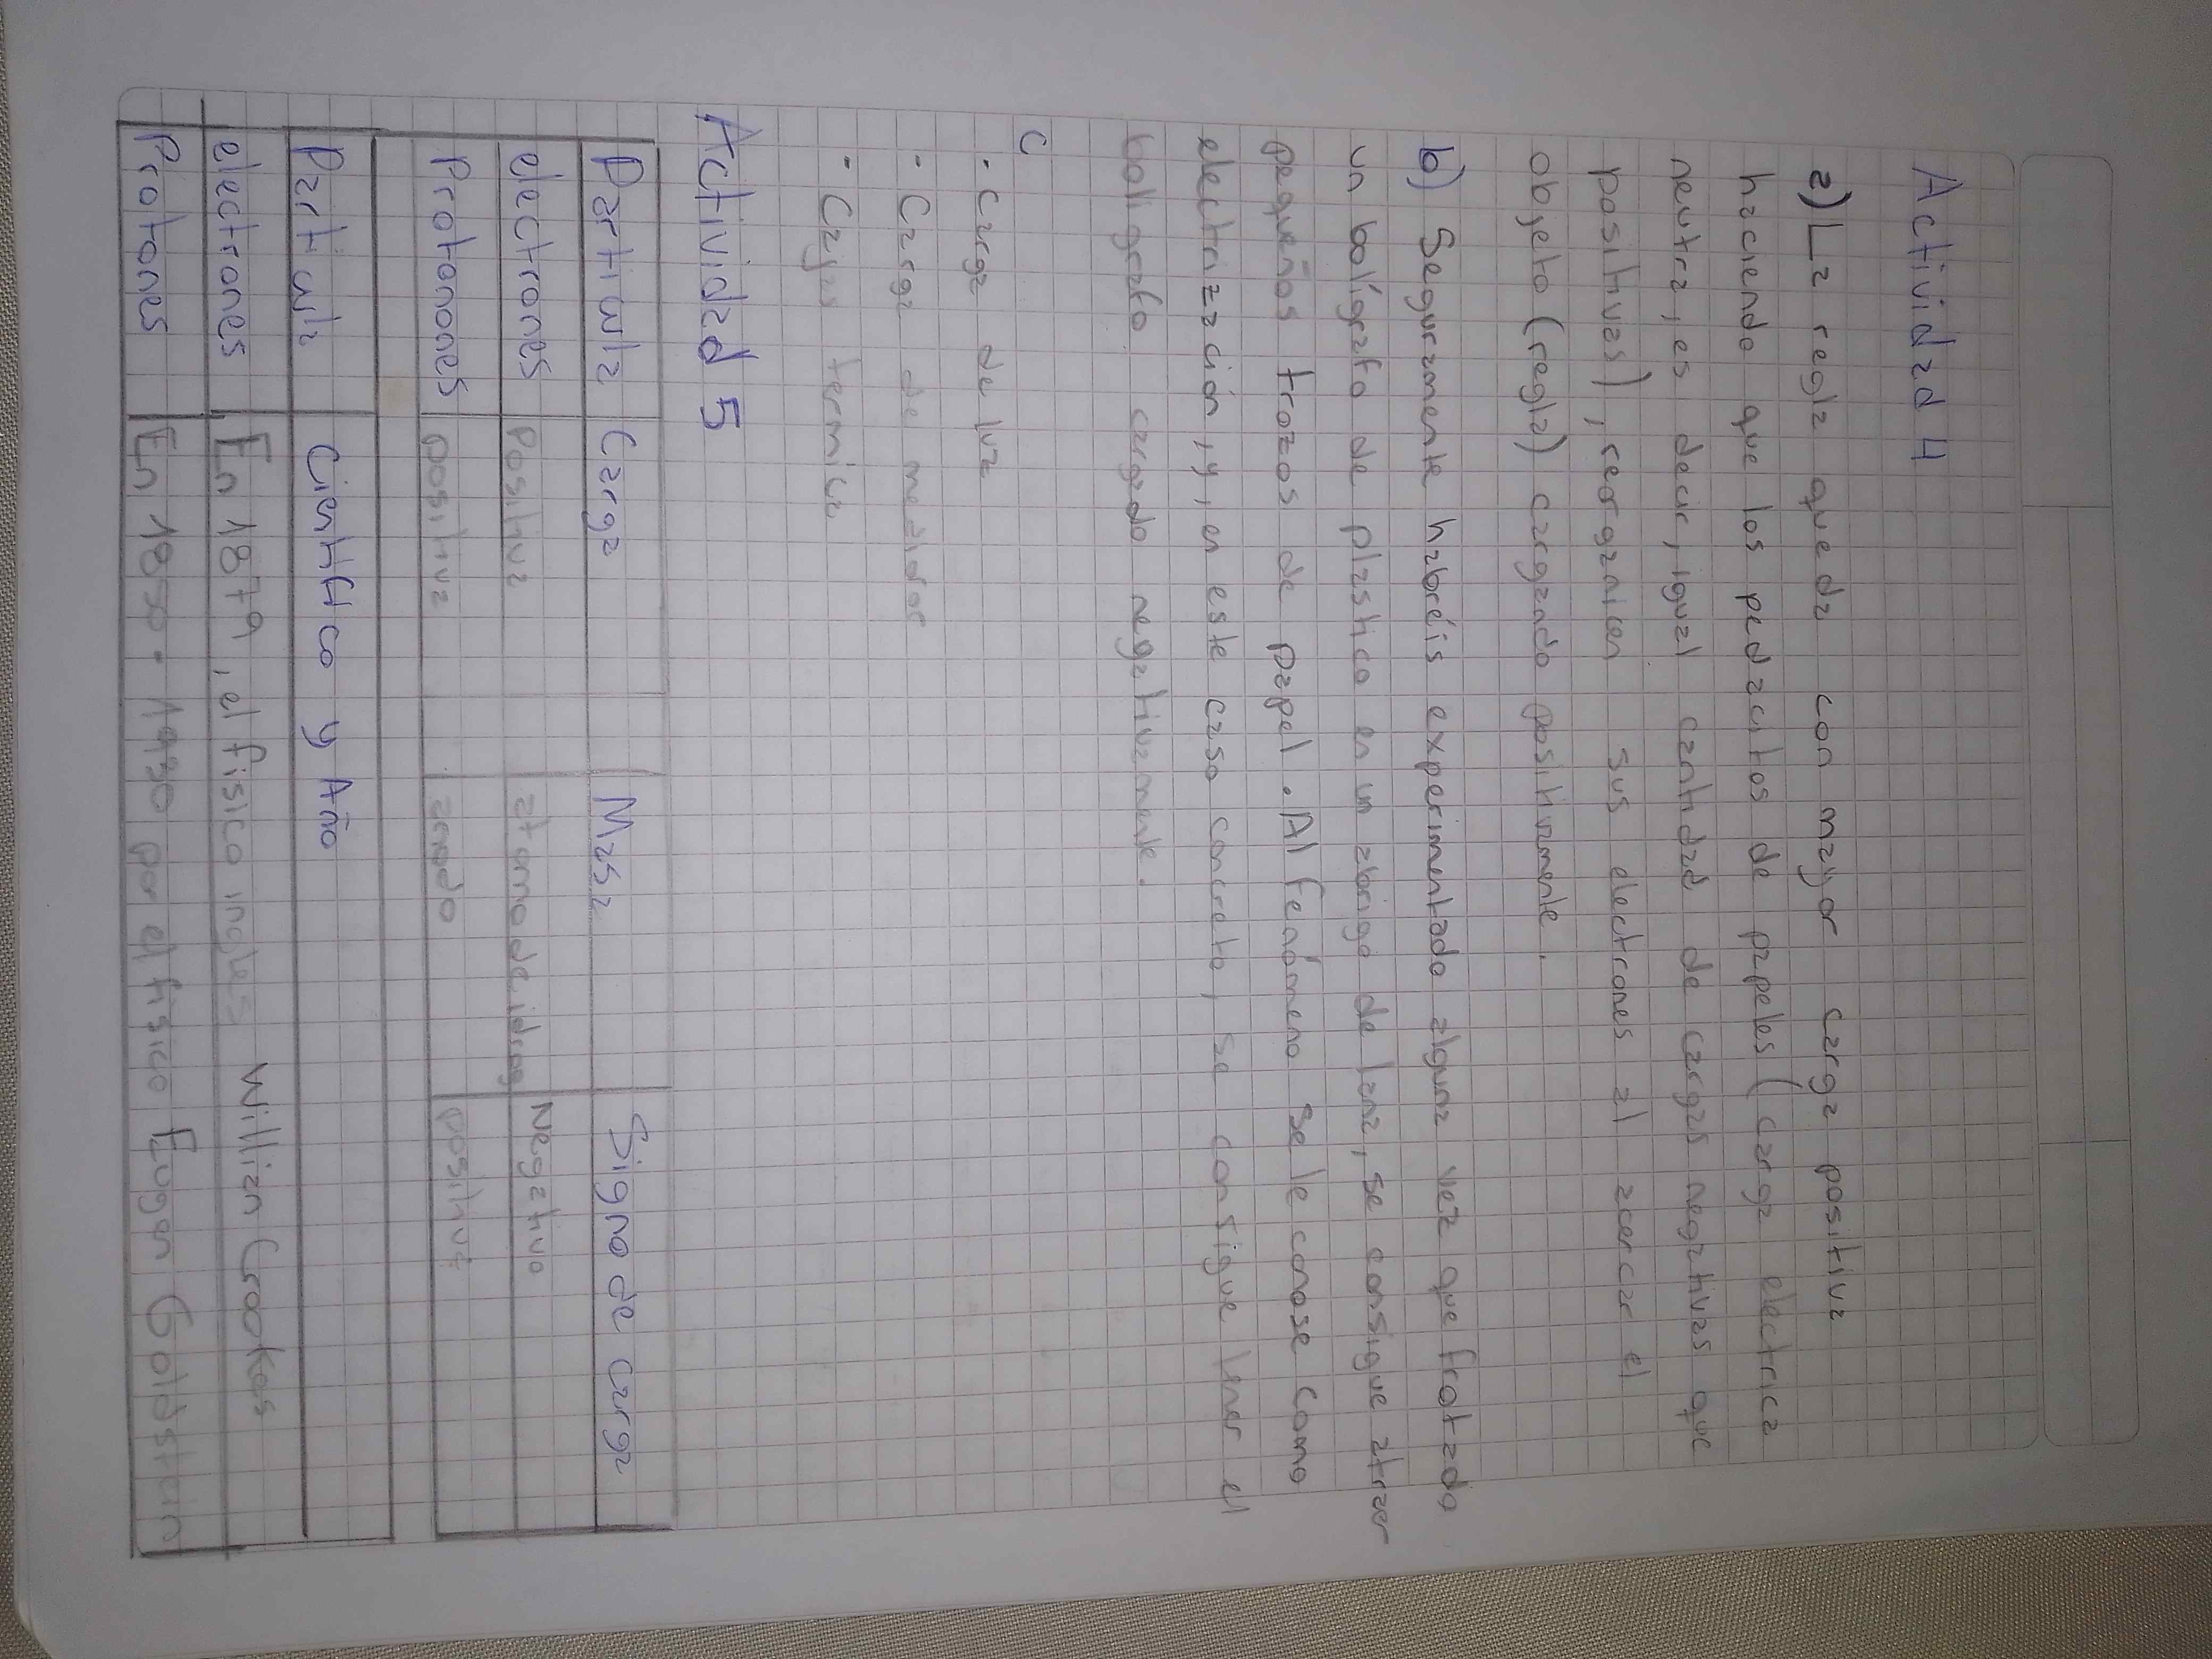 Actividad 4
a) La regla queda con mayor carga positiva
haciendo que los pedacitos de papeles (carga electrica
neutra, es decir, igual cantidad de cargas negativas que
positivas), reorganicen sus electrones al acercar el
objeto (regla) cargado positivamente.
b) Seguramente habréis experimentado alguna vez que frotado
un bolígrafo de plástico en un abrigo de lana, se consigue atraer
pequeños trozos de papel. Al fenómeno se le conose como
electrización, y, en este caso concreto, se consigue tener el
boligrafo cargado negativamente.
c
• carga de luz
• Carga de medidor
• Cajas termica
Actividad 5
Particula Carga Masa Signo de carga
electrones Positiva atomo de idrog Negativo
Protonones positiva positiva
Particula Científico y Año
electrones En 1879, el fisico ingles Willian Crookes
Protones En 1850 - 1930 por el fisico Eugen Goldstein